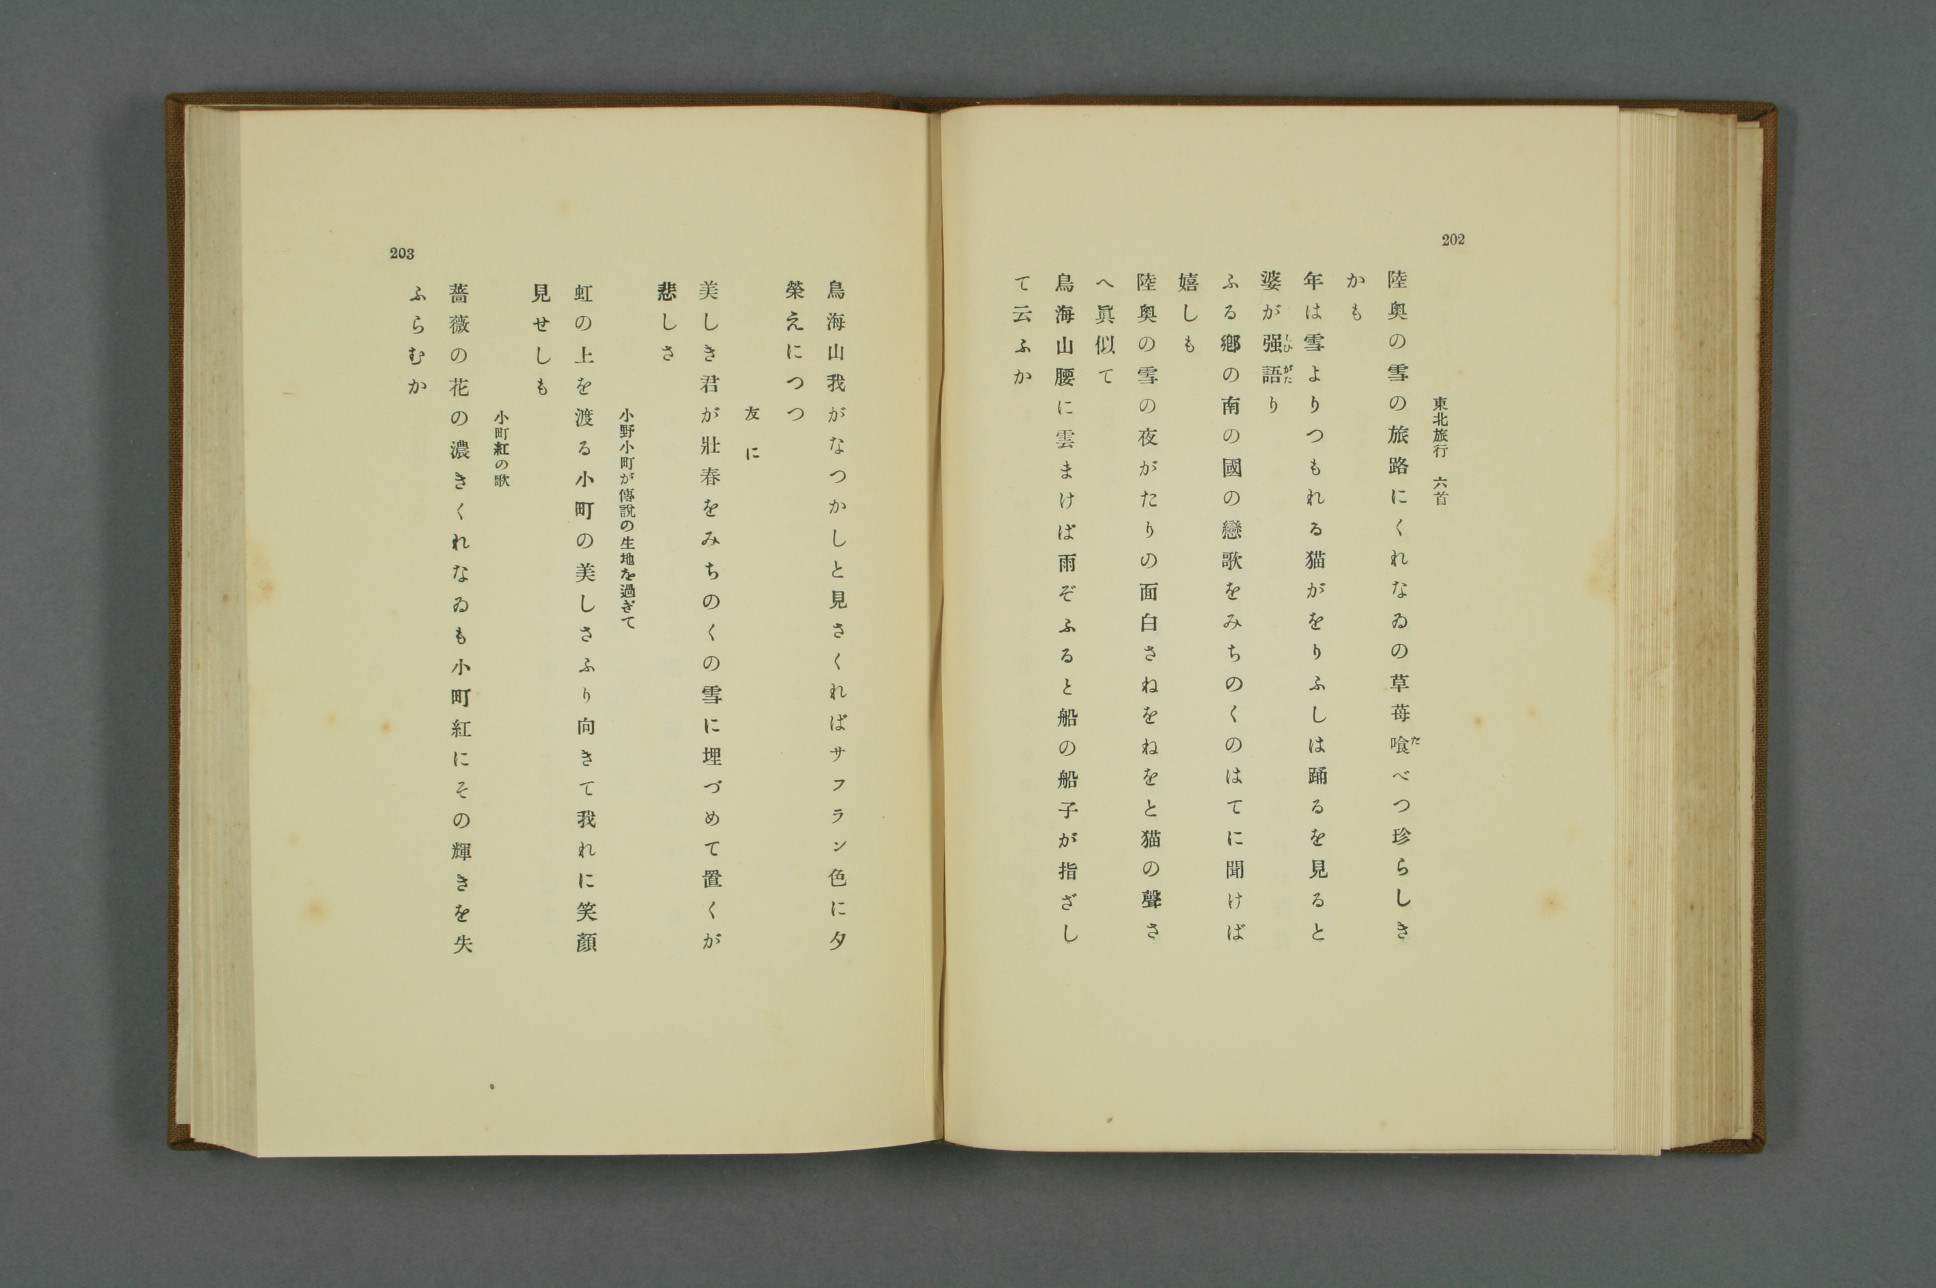 202
東北旅行　六首
陸奥の雪の旅路にくれなゐの草苺喰べつ珍らしき
かも
年は雪よりつもれる猫がをりふしは踊るを見ると
婆が强語り
ふる鄕の南の國の戀歌をみちのくのはてに聞けば
嬉しも
陸奥の雪の夜がたりの面白さねをねをと猫の聲さ
へ眞似て
鳥海山腰に雲まけば雨ぞふると船の船子が指ざし
て云ふか
203
鳥海山我がなつかしと見さくればサフラン色に夕
榮えにつつ
友に
美しき君が壯春をみちのくの雪に埋づめて置くが
悲しさ
小野小町が傳說の生地を過ぎて
虹の上を渡る小町の美しさふり向きて我れに笑顏
見せしも
小町紅の歌
薔薇の花の濃きくれなゐも小町紅にその輝きを失
ふらむか